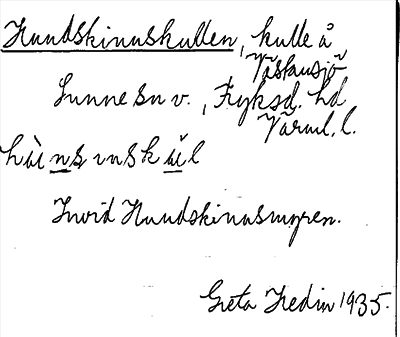 Hundskinnskullen, kulle å
Västansjö
Sunne sn v., Fryksd. hd
Värml. l.
Invid Hundskinnsmyren.
Greta Hedin 1935.